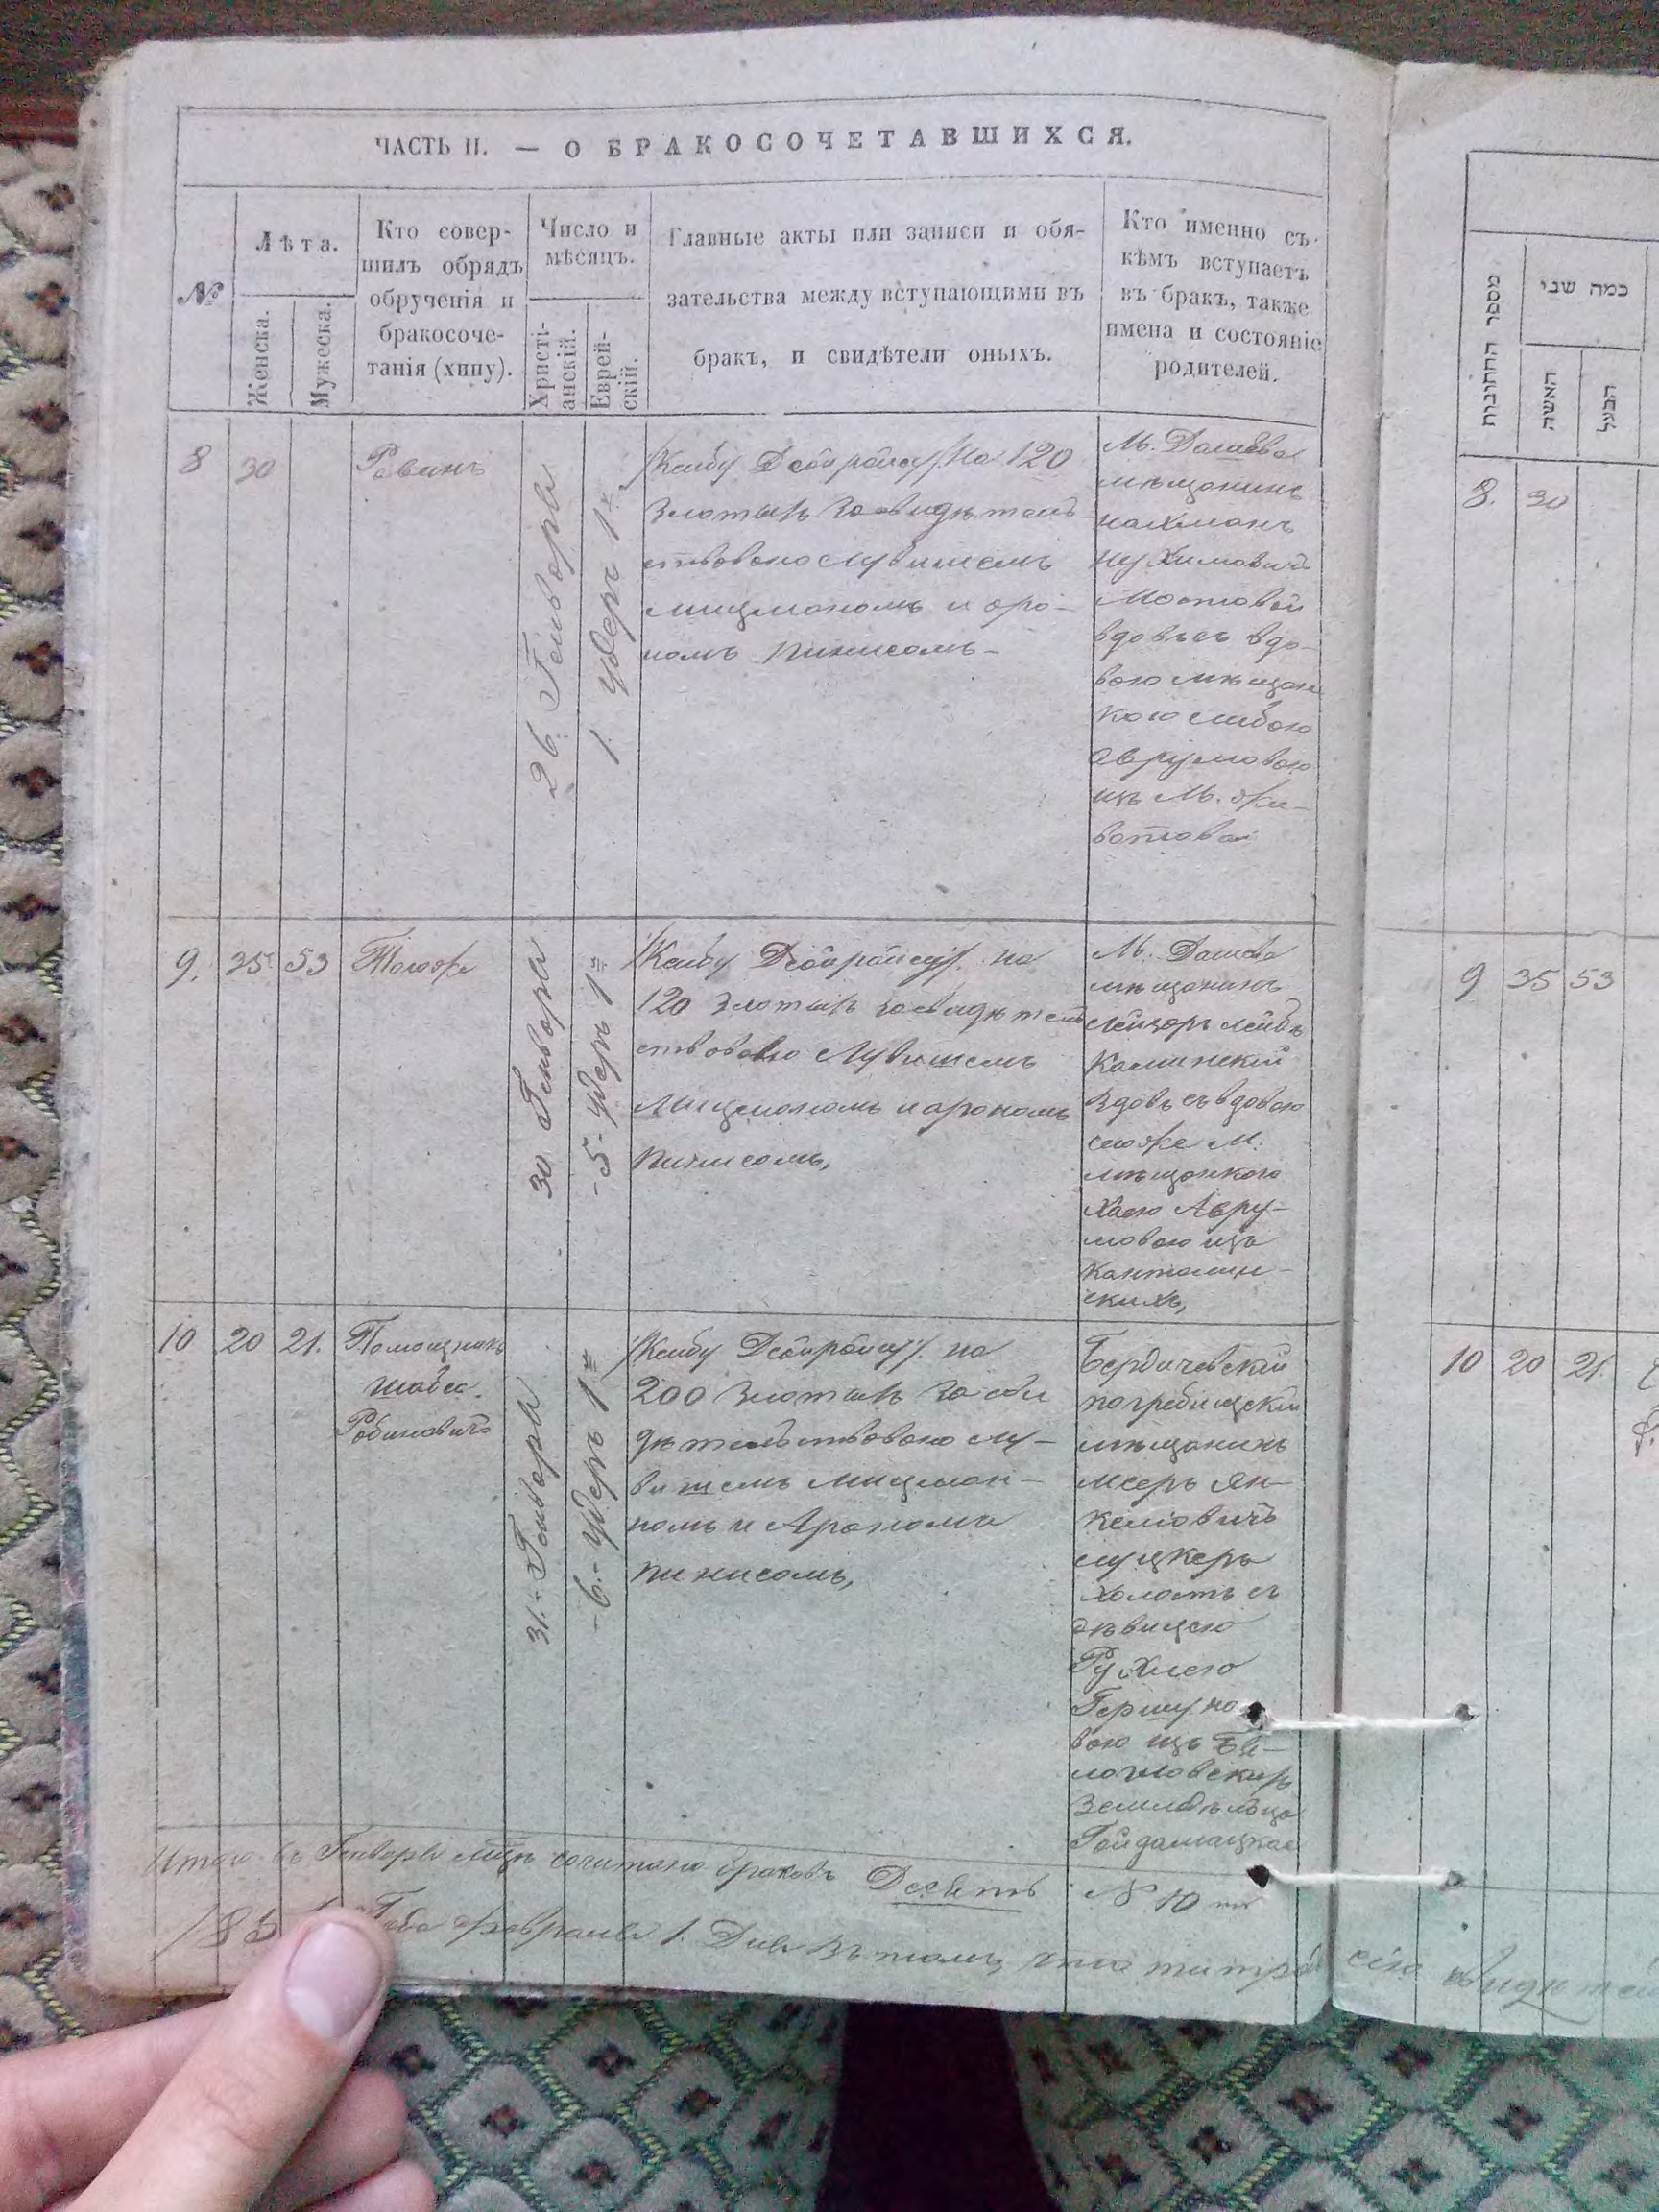 ЧАСТЬ II. — О БРАКОСОЧЕТАВШИХСЯ.
№
Лѣта.
Женска.
Мужеска.
Кто совер-
шилъ обрядъ
обрученія и
бракосоче-
танія (хипу).
Число и
мѣсяцъ.
Христі-
анскій.
Еврей-
скій.
Главные акты или записи и обя-
зательства между вступающими въ
бракъ, и свидѣтели оныхъ.
Кто именно съ
кѣмъ вступаетъ
въ бракъ, также
имена и состояніе
родителей.
8
30
Равинъ
26 Генваря
1 удеръ 1й
на 120
злотыхъ засвидѣтель
ствовано Лувишемъ
Мицманомъ и аро-
номъ Пинисомъ
М. Дашева
мѣщанинъ
нахманъ
нухимовичъ
Мостовой
вдовъ съ вдо-
вою мѣщан
кою
Аврумовою
изъ М. Жи-
вотова
9.
35
53
Тотоже
30 Генваря
5 удеръ 1й
на
120 злотыхъ засвидѣтель
ствовано Лувишемъ
Мицманомъ и арономъ
Пинисомъ,
М. Дашева
мѣщанинъ
Лейзоръ Лейбъ
Каминскій
вдовъ съ вдовою
тоже М.
мѣщанкою
Хаею Авру-
мовою изъ

скихъ,
10
20
21.
Помощникъ
Шабса
Рабиновичъ
31 Генваря
6 удеръ 1й
на
200 злотыхъ засви
дѣтельствовано Лу-
вишемъ Мицман-
номъ и Арономъ
Пинисомъ,
Бердичевскій
погребищскій
мѣщанинъ
мееръ Ян-
келіовичъ
Цукеръ
холостъ съ
дѣвицею
Рухлею
Гершуно
вою изъ Бѣ-

Земледѣльца
Гайдамацкая
Итого въ Генварѣ мцѣ сочитано браковъ Десять № 10
Года февраля 1 Дня въ томъ что
מספר החתונות
כמה שני
האשה
הבעל
8.
30
9
35
53
10
20
21.